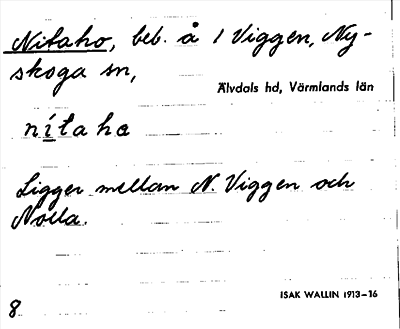 Nitaho, beb. å 1 Viggen, Ny-
skoga sn,
Älvdals hd, Värmlands län
nítaho
Ligger mellan N. Viggen och
Nolla.
ISAK WALLIN 1913–16
8